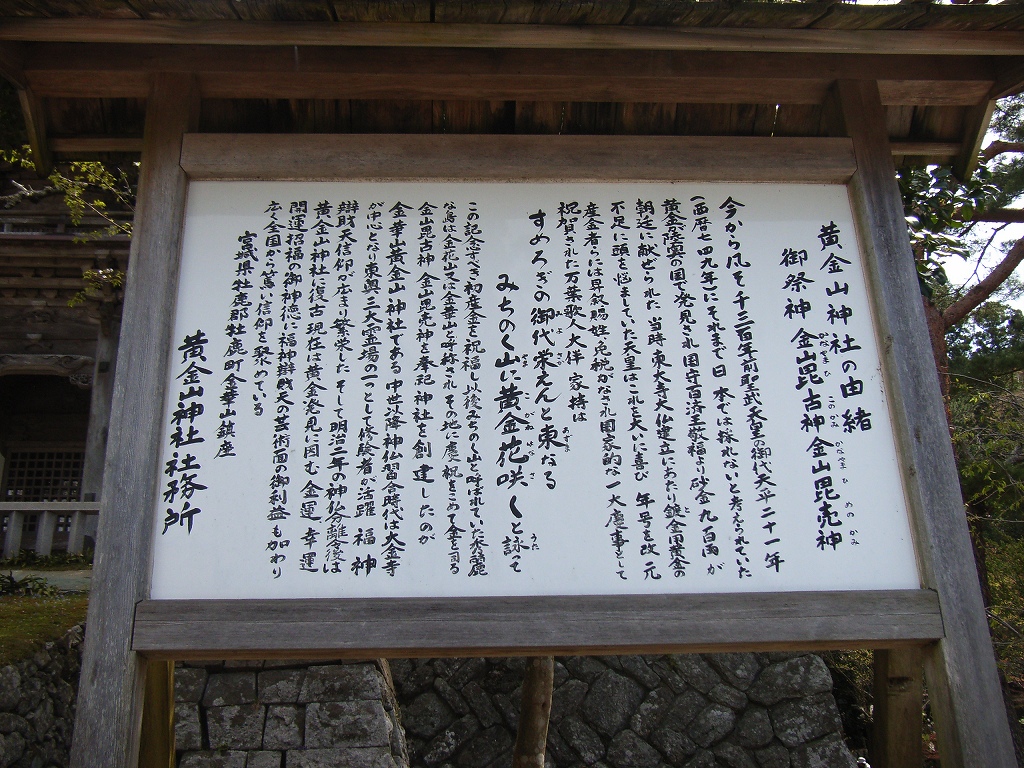 黄金山神社の由緒
御祭神 金山毘古神 金山毘売神
かなやまひこのかみ かなやまひめのかみ
今から凡そ千二百年前聖武天皇の御代天平二十一年
(西暦七四九年)にそれまで日本では採れないと考えられていた
黄金が陸奥の国で発見され国守百済王敬福より砂金九百両が
朝廷に献ぜられた 当時東大寺大仏建立にあたり鍍金用黄金の
不足に頭を悩ましていた天皇はこれを大いに喜び 年号を改元
産金者らには昇叙賜姓、免税がなされ国家的な一大慶事として
祝賀された 万葉歌人大伴家持は
すめろぎの御代栄えんと東なる
みちのく山に黄金花咲くと詠って
この記念すべき初産金を祝福し以後みちのく山と呼ばれていた牡鹿
な島は金花山又は金華山と呼称されその地に慶祝をこめて金を司る
金山毘古神 金山毘売神を奉祀 神社を創建したのが
金華山黄金山神社である 中世以降神仏習合時代は大金寺
が中心となり東奥三大霊場の一つとして修験者が活躍 福神
辯財天信仰が広まり繁栄した そして明治二年の神仏分離後は
黄金山神社に復古 現在は黄金発見に因む金運 幸運
開運招福の御神徳に福神辯財天の芸術面の御利益も加わり
広く全国から篤い信仰を聚めている
宮城県牡鹿郡牡鹿町金華山鎮座
黄金山神社社務所